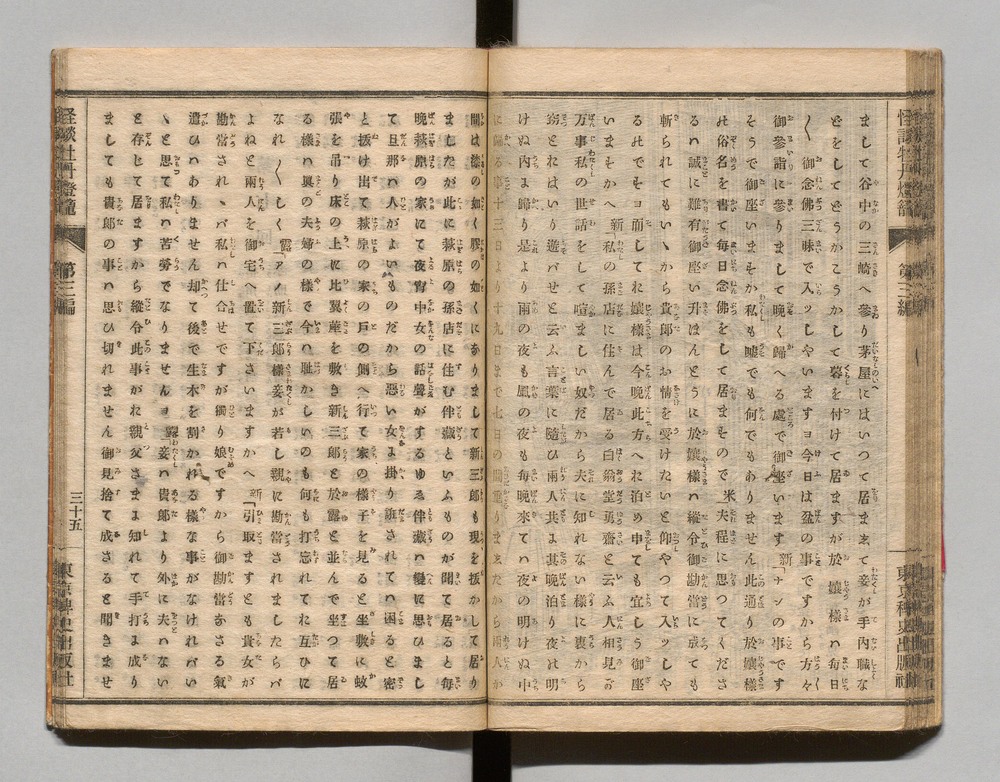 まして谷中の三崎へ参り茅屋にはいつて居ままて妾が手内職な
どをしてどうかこうかして暮を付けて居ますが於嬢様ハ毎日
〱御念佛三昧で入ッしやいますヨ今日は盆の事ですから方々
御参詣に参りまして晩く歸へる處で御座います新「ナンの事です
そうで御座いまをか私も嘘でも何でもありません此通り於嬢様
の俗名を書て毎日念佛をして居ますので米「夫程に思つてくださ
るハ誠に難有御座い升ほんとうに於嬢様ハ縦令御勘當に成ても
斬られてもいゝから貴郎のお情を受けたいと仰やつて入ッしや
るのでそヨ而してお嬢様は今晩此方へお泊め申ても宜しう御座
いまそかへ新「私の孫店に住んで居る白翁堂勇齋と云ふ人相見が
万事私の世話をして喧ましい奴だから夫に知れない様に裏から
窃とおはいり遊バせと云ふ言葉に隨ひ兩人共よ其晩泊り夜は明
けぬ内よ歸り是より雨の夜も風の夜も毎晩來てハ夜の明けぬ中
に歸る事十三日より十九日まで七日の間重りましたから兩人が
間は漆の如く膠の如くになりまして新三郎も現を抜かして居り
ましたが此に萩原の孫店に住む伴藏といふものが聞て居ると毎
晩萩原の家にて夜宵中女の話聲がするゆゑ伴藏ハ變に思ひまし
て旦那ハ人がよいものだから惡い女よ掛り誑されてハ困ると密
と抜け出て萩原の家の戸の側へ行て家の様子を見ると坐敷に蚊
張を吊り床の上に比翼蓙を敷き新三郎と於露と並んで坐つて居
る様ハ眞の夫婦の様で今ハ耻かしいのも何も打忘れてお互ひに
なれ〱しく露「アノ新三郎様妾が若し親に勘當されましたらバ
よねと兩人を御宅へ置て下さいますかへ新「引取ますとも貴女が
勘當されゝバ私ハ仕合せですが獨り娘ですから御勘當なさる氣
遣ひハありません却て後で生木を割かれる様な事がなければい
ゝと思て私ハ苦勞でなりませんヨ露「妾ハ貴郎より外に夫ハない
と存じて居ますから縦令此事がお親父さまよ知れて手打よ成り
ましても貴郎の事ハ思ひ切れません御見捨て成さると聞きませ
怪談牡丹燈籠
第三編
三十五
東京稗史出版社
怪談牡丹燈籠
第三編
東京稗史出版社